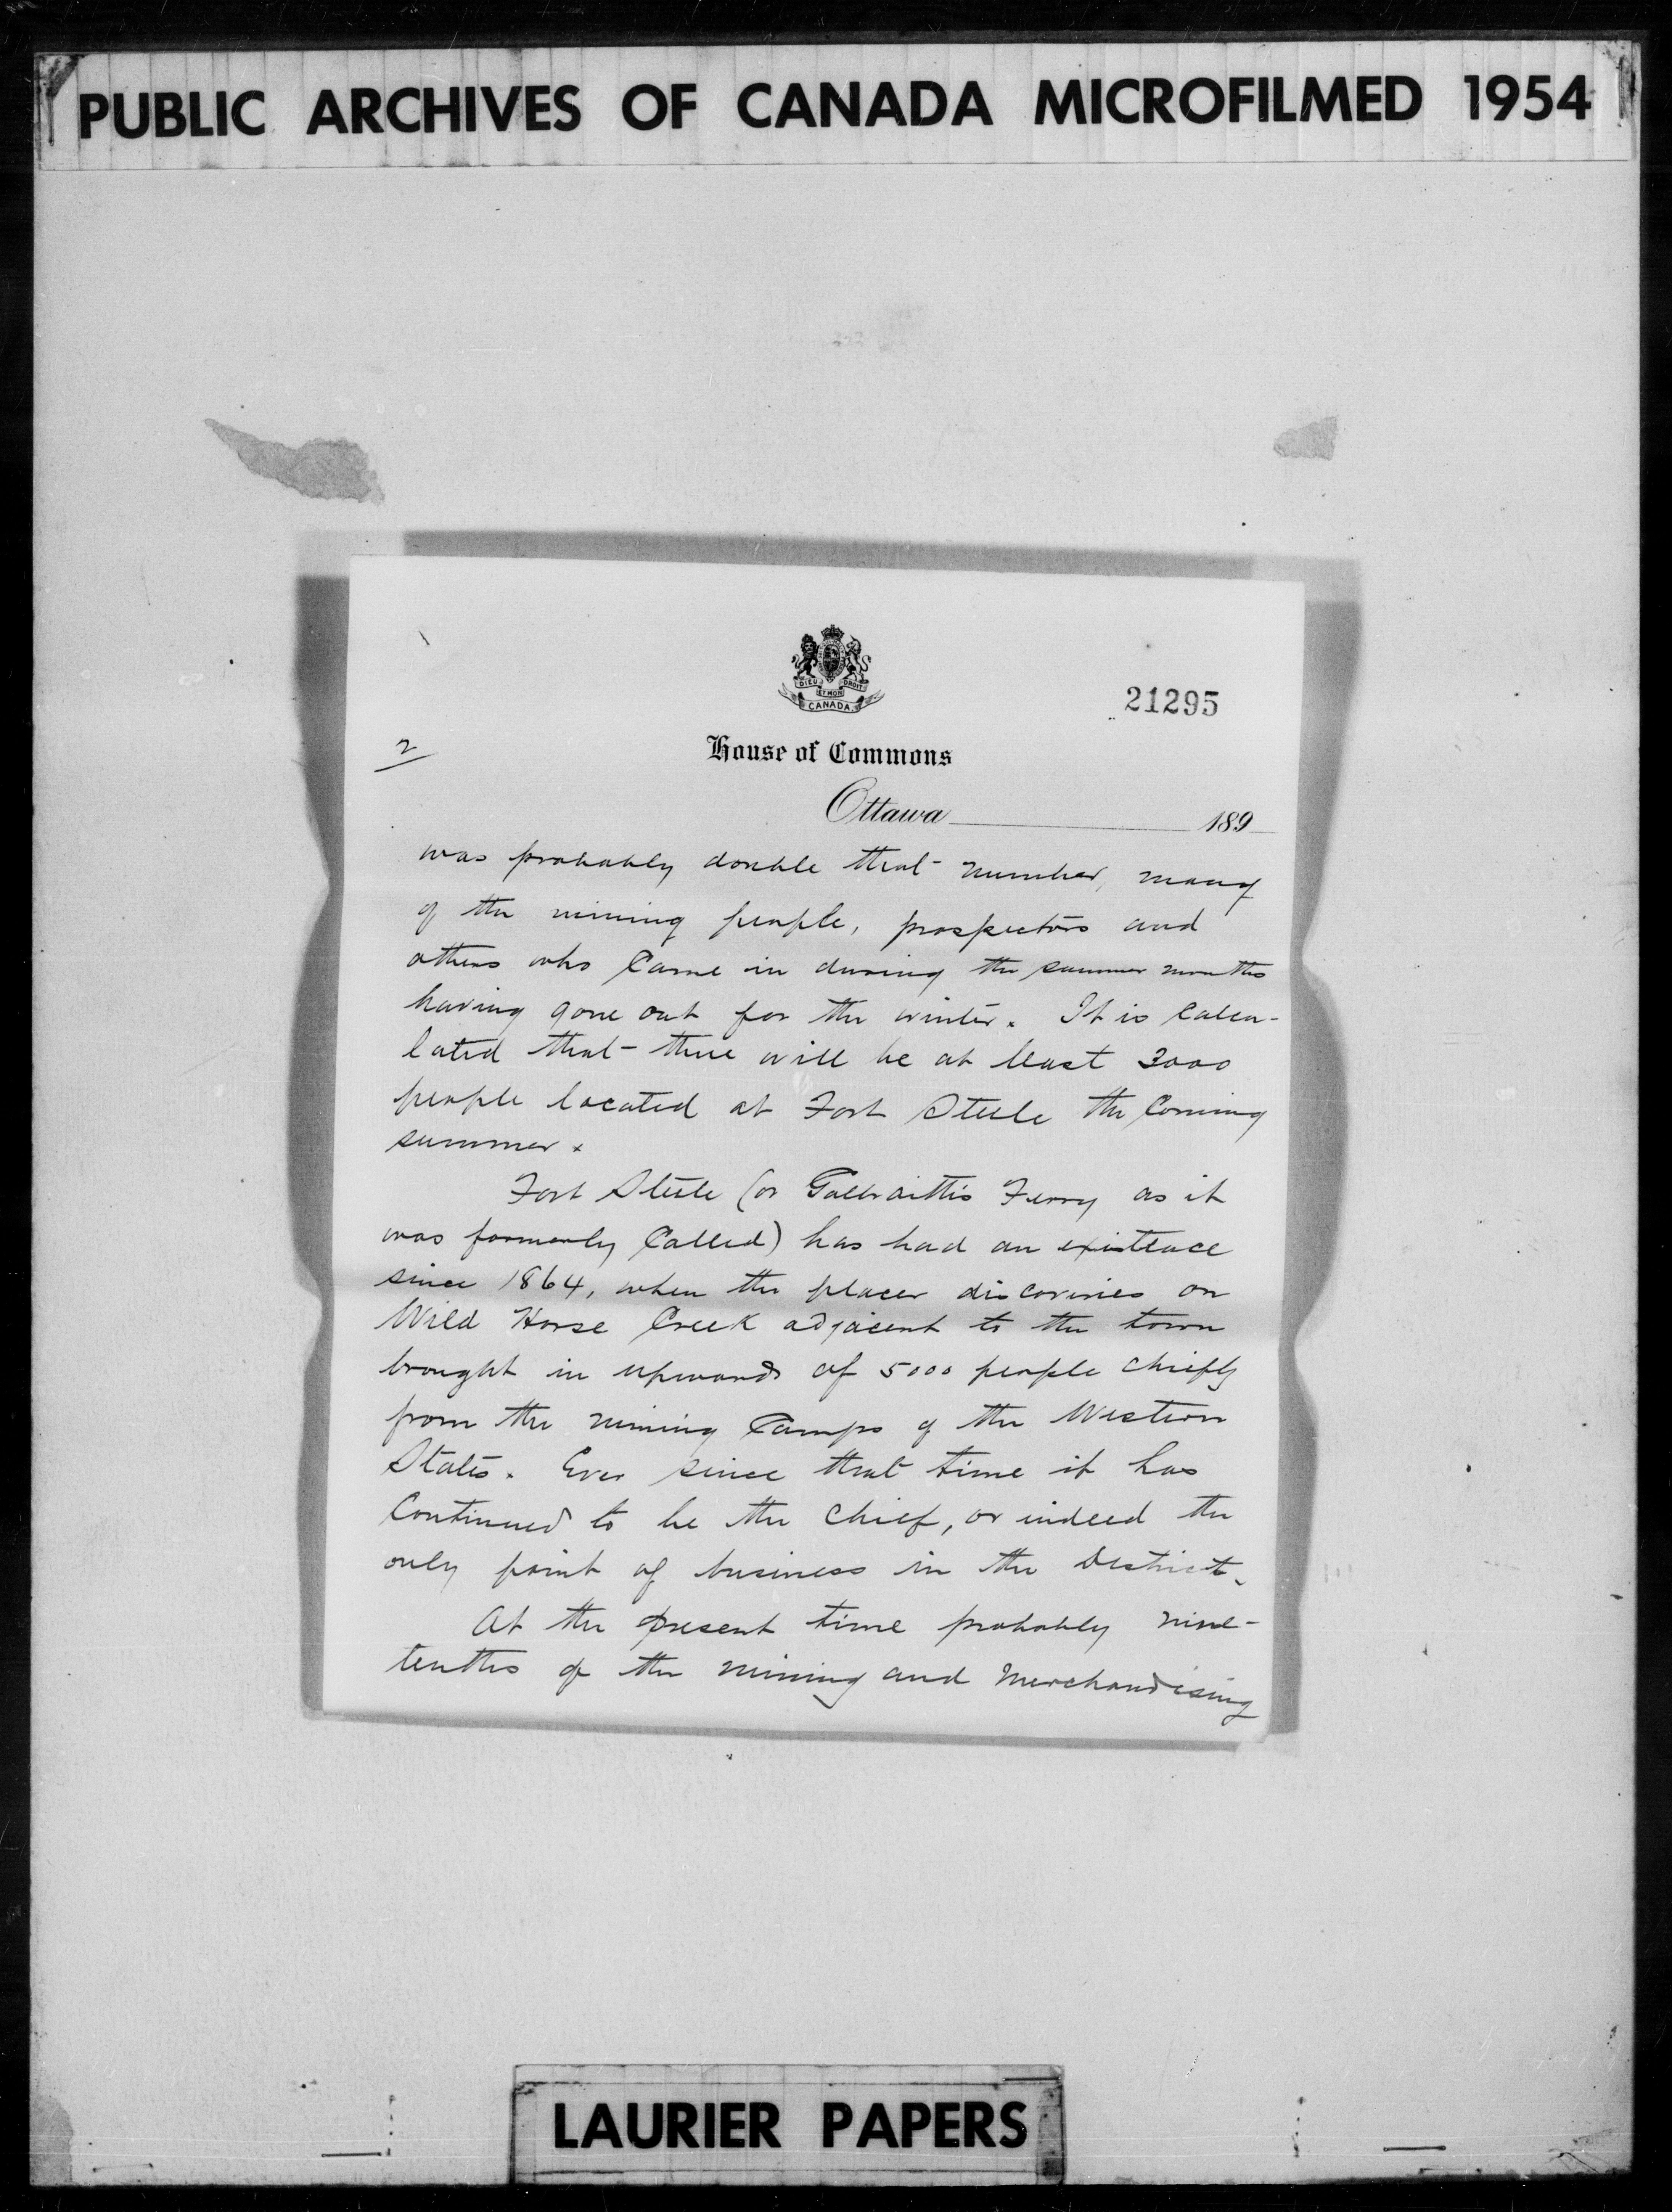 PUBLIC ARCHIVES OF CANADA MICROFILMED 1954
DIEU ET MON DROIT
CANADA
21295
2
House of Commons
Ottawa 189
was probably double that number, many
of the mining people, prospectors and
others who Came in during the summer months
having gone out for the winter. It is Calcu-
lated that there will be at least 3000
people located at Fort Steele the Coming
summer.
Fort Steele (or Galbraith's Ferry as it
was formerly Called) has had an existence
since 1864, when the placer discoveries on
Wild Horse Creek adjacent to the town
brought in upwards of 5000 people chiefly
from the mining Camps of the Western
States. Ever since that time it has
Continued to be the Chief, or indeed the
only point of business in the District.
At the present time probably nine-
tenths of the mining and Merchandising
LAURIER PAPERS